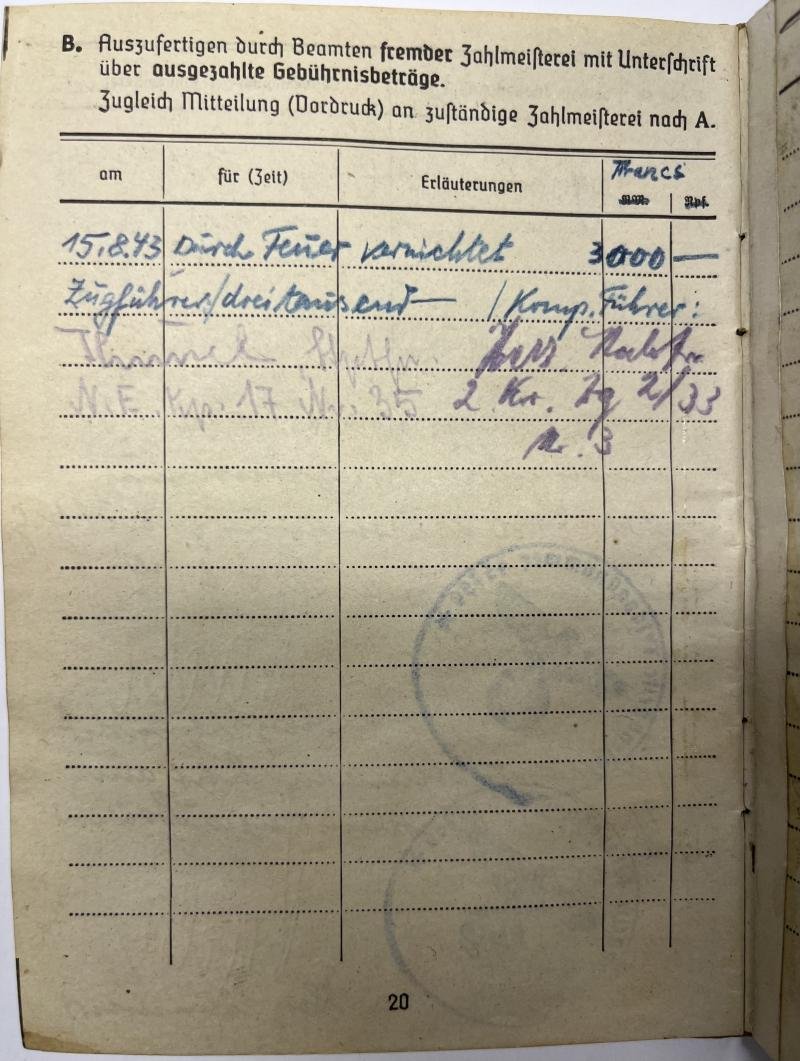 B. Auszufertigen durch Beamten fremder Zahlmeisterei mit Unterschrift
über ausgezahlte Gebührnisbeträge.
Zugleich Mitteilung (Vordruck) an zuständige Zahlmeisterei nach A.
am für (Zeit) Erläuterungen Francs
RM. Rpf.
15.8.43 Durch Feuer vernichtet 3000 —
Zugführer / dreitausend — / Komp. Führer:
N. E. Kp. 17 Nr. 35 2 Kr. Zg 2/33
Nr. 3
20